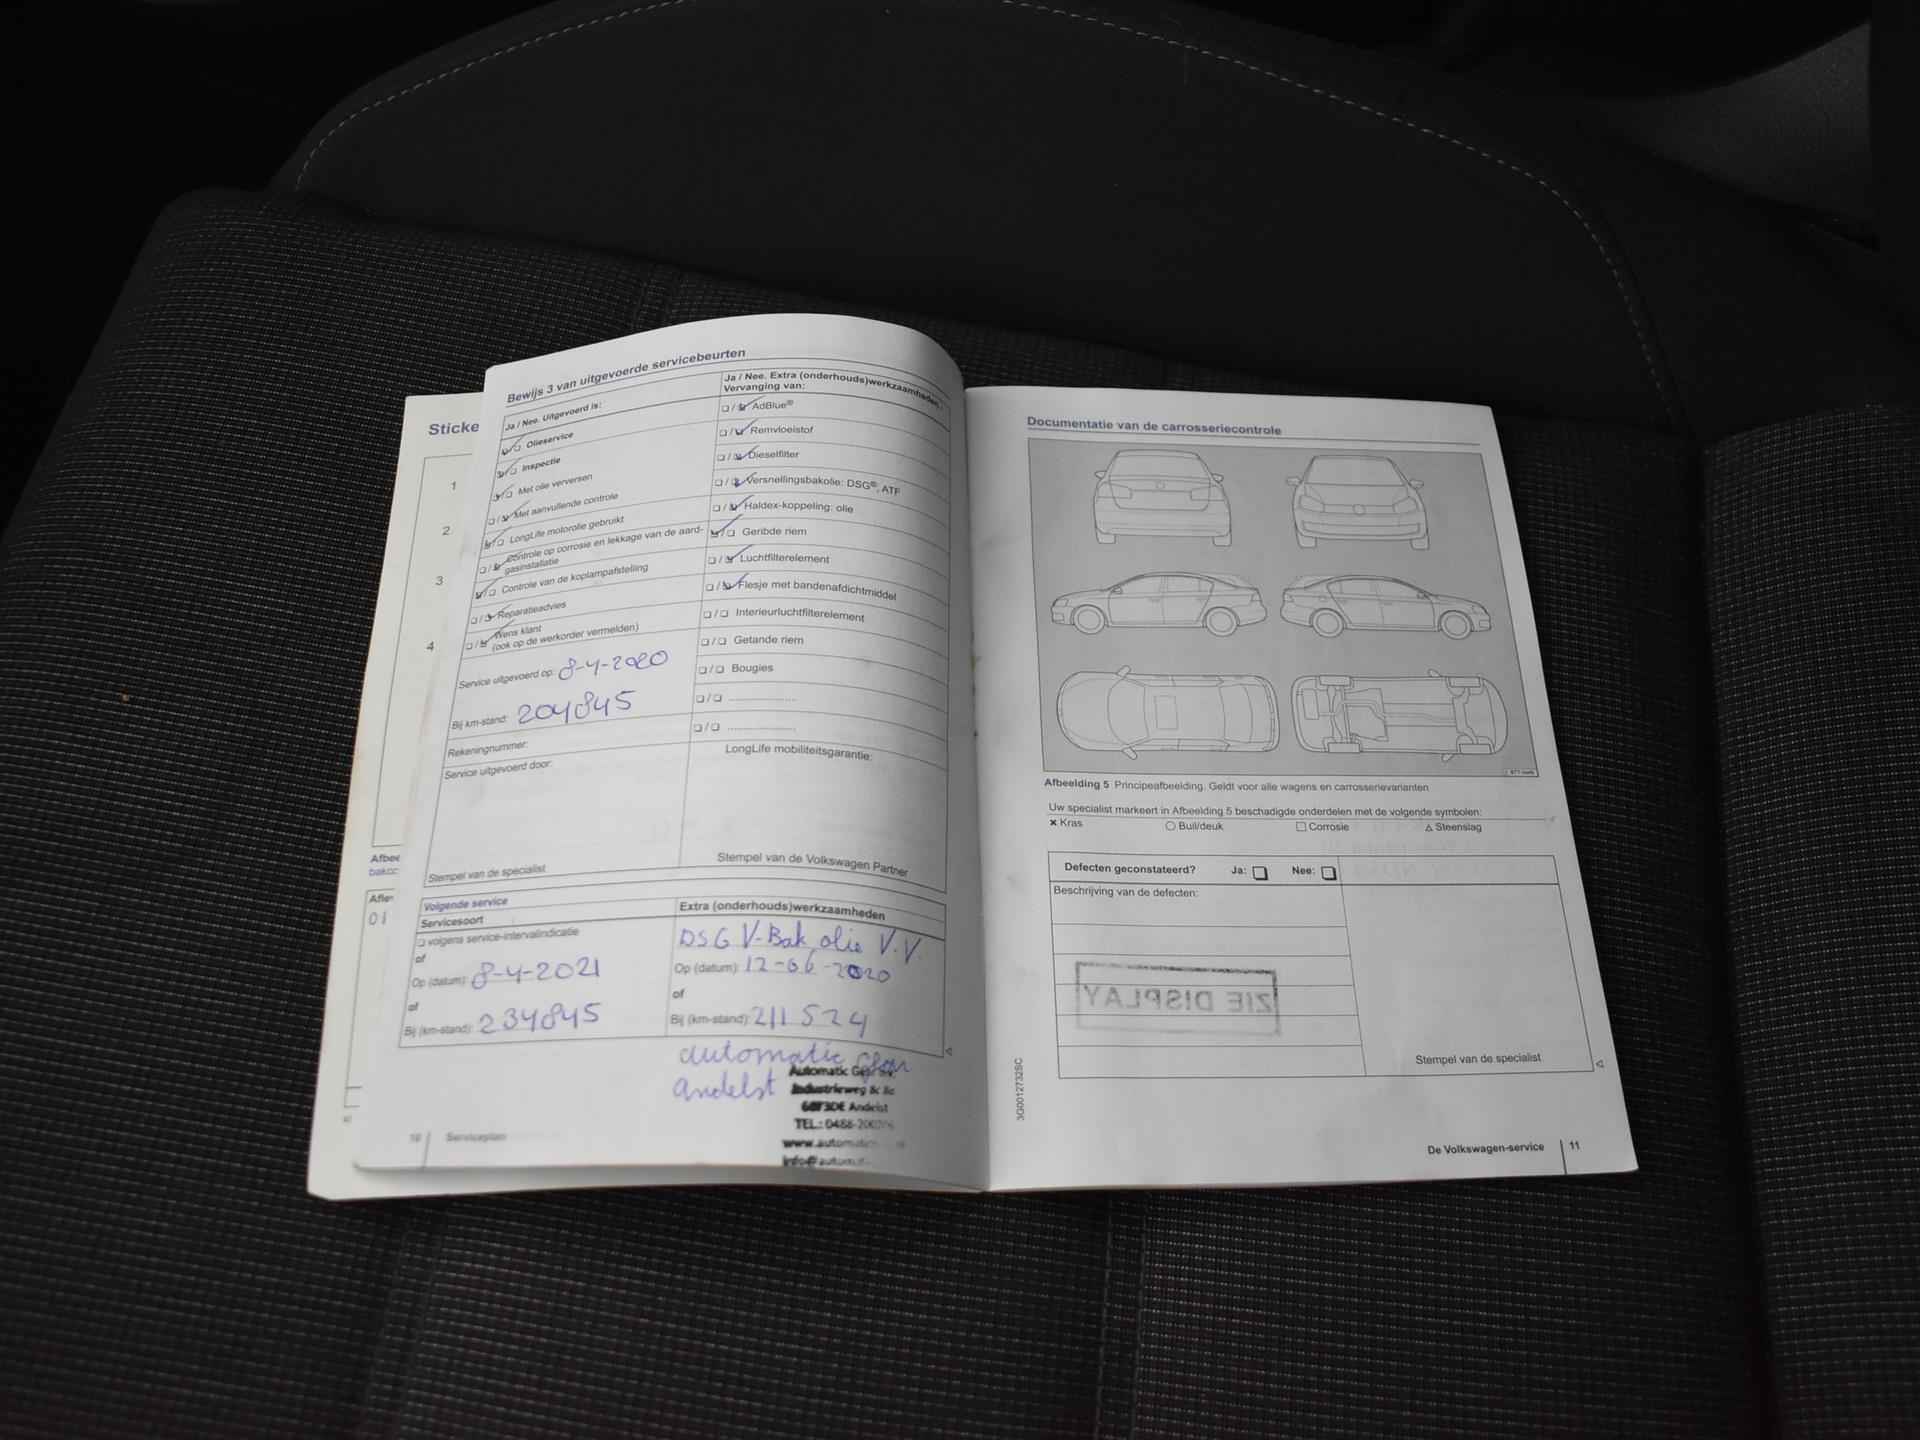 Sticke
1
2
3
4
Afbee
bakcc
Bewijs 3 van uitgevoerde servicebeurten
Ja / Nee. Uitgevoerd is:
Olieservice
Inspectie
Met olie verversen
Met aanvullende controle
LongLife motorolie gebruikt
Controle op corrosie en lekkage van de aard-
gasinstallatie
Controle van de koplampafstelling
Reparatieadvies
Wens klant
(ook op de werkorder vermelden)
Service uitgevoerd op: 8-4-2020
Bij km-stand: 204845
Rekeningnummer:
Service uitgevoerd door:
Stempel van de specialist
Ja / Nee. Extra (onderhouds)werkzaamheden.
Vervanging van:
AdBlue®
Remvloeistof
Dieselfilter
Versnellingsbakolie: DSG®, ATF
Haldex-koppeling: olie
Geribde riem
Luchtfilterelement
Flesje met bandenafdichtmiddel
Interieurluchtfilterelement
Getande riem
Bougies
LongLife mobiliteitsgarantie:
Stempel van de Volkswagen Partner
Volgende service
Servicesoort
volgens service-intervalindicatie
of
Op (datum): 8-4-2021
of
Bij (km-stand): 234845
Extra (onderhouds)werkzaamheden
DSG V-Bak olie V.V.
Op (datum): 12-06-2020
of
Bij (km-stand): 211524
automatic Gear
Andelst
Automatic Gear
Industrieweg 8c
Andelst
TEL.: 0488-
www.automatic
info@automat
10 Serviceplan
Documentatie van de carrosseriecontrole
Afbeelding 5 Principeafbeelding. Geldt voor alle wagens en carrosserievarianten
Uw specialist markeert in Afbeelding 5 beschadigde onderdelen met de volgende symbolen:
× Kras ○ Buil/deuk □ Corrosie △ Steenslag
Defecten geconstateerd? Ja: Nee:
Beschrijving van de defecten:
ZIE DISPLAY
Stempel van de specialist
3G0012732SC
De Volkswagen-service 11